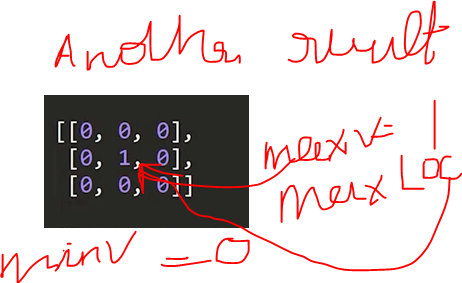 Another result
[[0, 0, 0],
[0, 1, 0],
[0, 0, 0]]
maxv= 1
max Loc
minv = 0